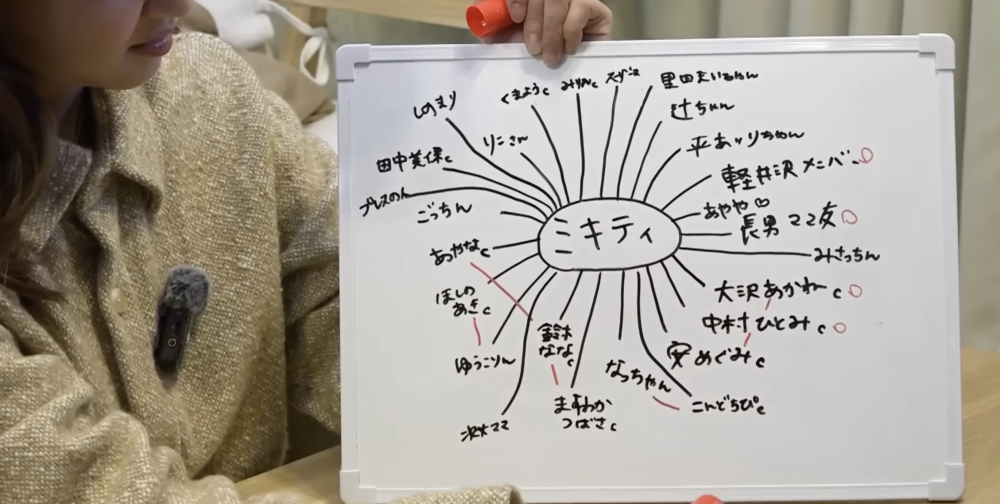 しのまり
くまようc
みりんc
スザンヌ
里田まいちゃん
辻ちゃん
りこさん
平あいりちゃん
田中美保c
軽井沢メンバー
プレスのん
ごっちん
あやや♡
長男ママ友
ミキティ
みきっちん
あやなc
大沢あかねc
ほしの
あきc
中村ひとみc
鈴木
ななc
安めぐみc
ゆうこりん
なっちゃん
こんどちぴc
ますわか
つばさc
次女ママ